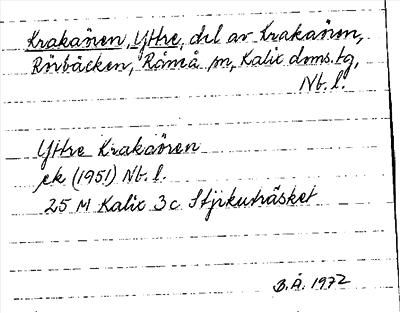 Krakaören, Yttre, del av Krakaören,
Rörbäcken, Råneå sn, Kalix doms.tg,
Nb. l.
Yttre Krakaören
ek (1951) Nb. l.
25 M Kalix 3c Stjikuträsket
B.Å. 1972